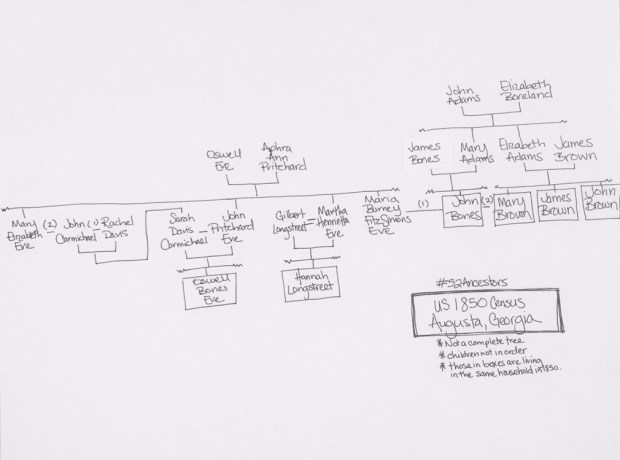 John Adams
Elizabeth Boreland
James Bones
Mary Adams
Elizabeth Adams
James Brown
Oswell Eve
Aphra Ann Pritchard
Mary Elizabeth Eve
(2)
John Carmichael
(1)
Rachel Davis
Sarah Davis Carmichael
John Pritchard Eve
Gilbert Longstreet
Martha Henrietta Eve
Maria Burney FitzSimons Eve
(1)
John Bones
(2)
Mary Brown
James Brown
John Brown
Oswell Bones Eve
Hannah Longstreet
#52Ancestors
US 1850 Census
Augusta, Georgia
* Not a complete tree
* children not in order
* those in boxes are living
in the same household in 1850.